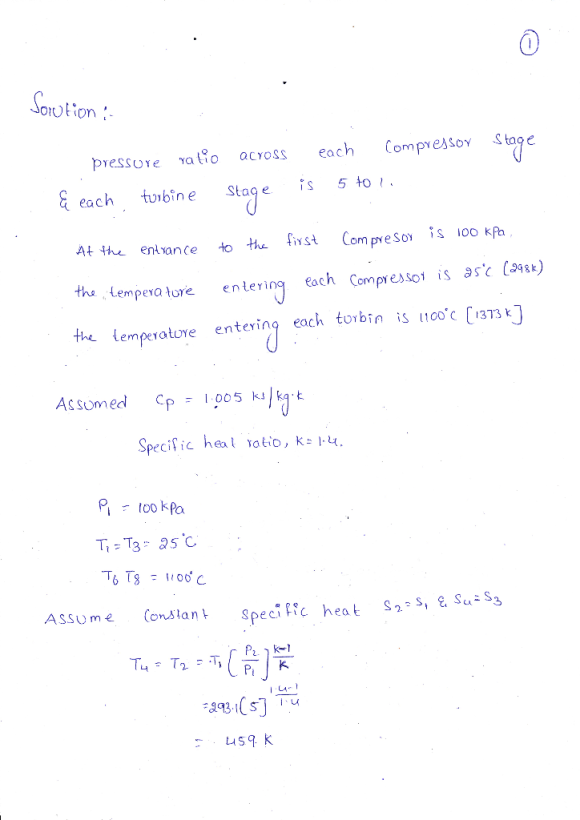 1
Solution :-
pressure ratio across each Compressor stage
& each turbine stage is 5 to 1.
At the entrance to the first Compresor is 100 kPa.
the temperature entering each Compressor is 25°C (298k)
the temperature entering each turbin is 1100°C [1373 K]
Assumed Cp = 1.005 kJ/kg.k
Specific heat ratio, K = 1.4.
P₁ = 100 kPa
T₁ = T3 = 25°C
T6 T8 = 1100°C
Assume Constant specific heat S2 = S₁ & S4 = S3
T4 = T2 = T₁ (P2/P1]^(k-1/K)
= 293.1 (5]^(1.4-1/1.4)
= 459 K